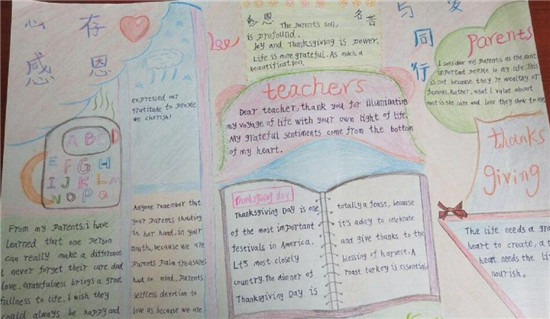 心存
感恩
与爱
同行
感恩
名言
The parents son,
is profound.
Joy and Thanksgiving is power.
Life is more grateful. As much a
beautification.
expressed our
gratitude to people
we cherish!
teachers
Dear teacher, thank you for illuminating
my voyage of life with your own light of life.
My grateful sentiments come from the bottom
of my heart.
Parents
I consider my parents as the most
important people in my life. This is
not because they're wealthy or
famous. Rather, what I value about
most is the care and love they show to me.
thanks
giving
ABCD
EFGH
IJKLM
NOPQ
From my parents, i have
learned that one person
can really make a difference
I never forget their care and
love. Gratefulness brings a great
fullness to life, I wish they
could always be happy and
Anyone remember that
your parents
in her hand, in your
mouth, because we are
Parents Palm treasures
had in mind. Parents
selfless devotion to
love us because we are
Thanksgiving day
Thanksgiving Day is one
of the most important
festivals in America.
It's most closely
country. The dinner of
Thanksgiving Day is
totally a feast, because
it's a day to celebrate
and give thanks to the
blessing of harvest. A
roast turkey is essential
The life needs a gra
heart to create, a t
heart needs the li
nourish.